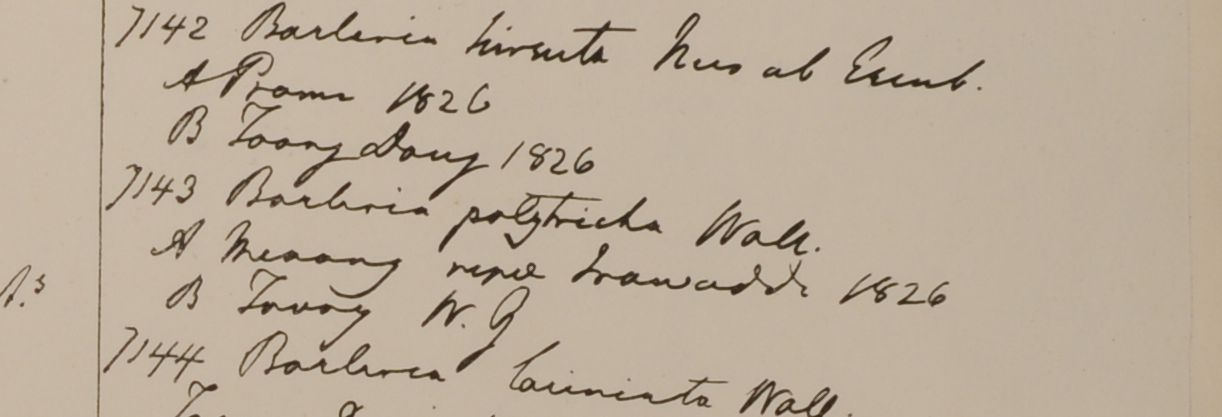 7142 Barleria hirsuta Nees ab Esenb.
A Prome 1826
B Toong Dong 1826
7143 Barleria polytricha Wall.
A Meaong ripae Irawaddi 1826
B Tavoy W. G
7144 Barleria laciniata Wall.